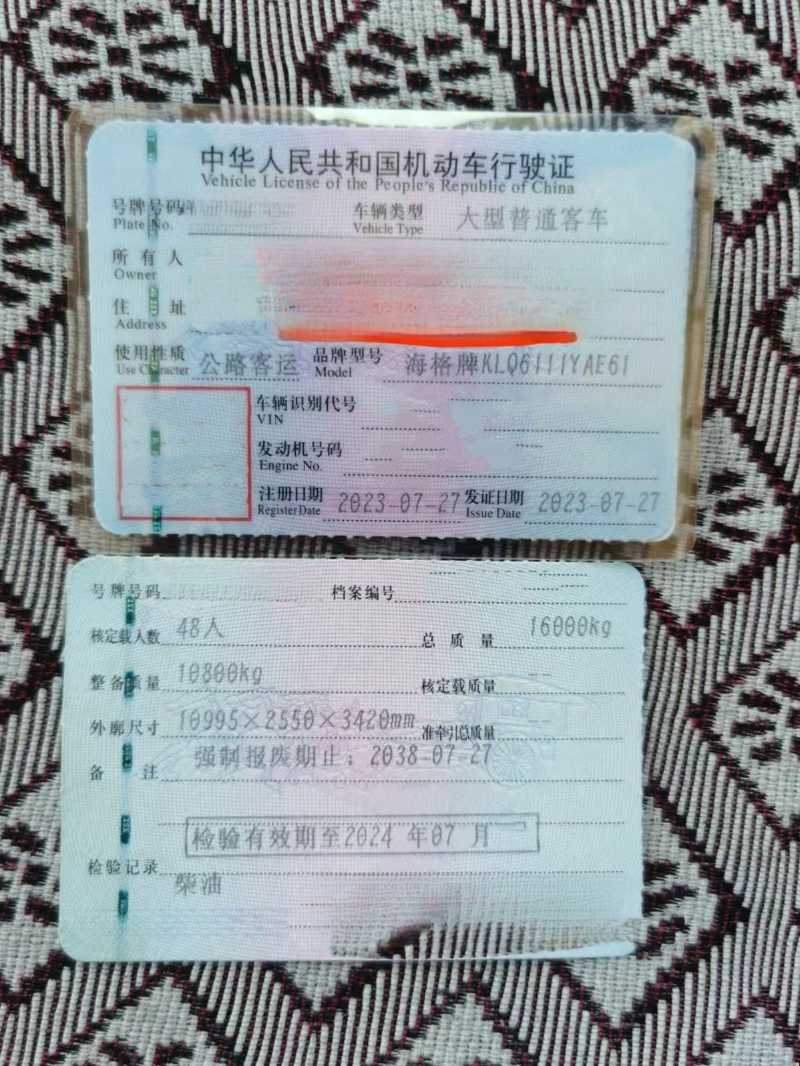 中华人民共和国机动车行驶证
Vehicle License of the People's Republic of China
号牌号码 车辆类型 大型普通客车
Plate No. Vehicle Type
所有人
Owner
住址
Address
使用性质 公路客运 品牌型号 海格牌KLQ6111YAE61
Use Character Model
车辆识别代号
VIN
发动机号码
Engine No.
注册日期 2023-07-27 发证日期 2023-07-27
Register Date Issue Date
号牌号码 档案编号
核定载人数 48人 总质量 16000kg
整备质量 10800kg 核定载质量 --
外廓尺寸 10995×2550×3420mm 准牵引总质量 --
备注 强制报废期止：2038-07-27
检验有效期至2024年07月
检验记录
柴油